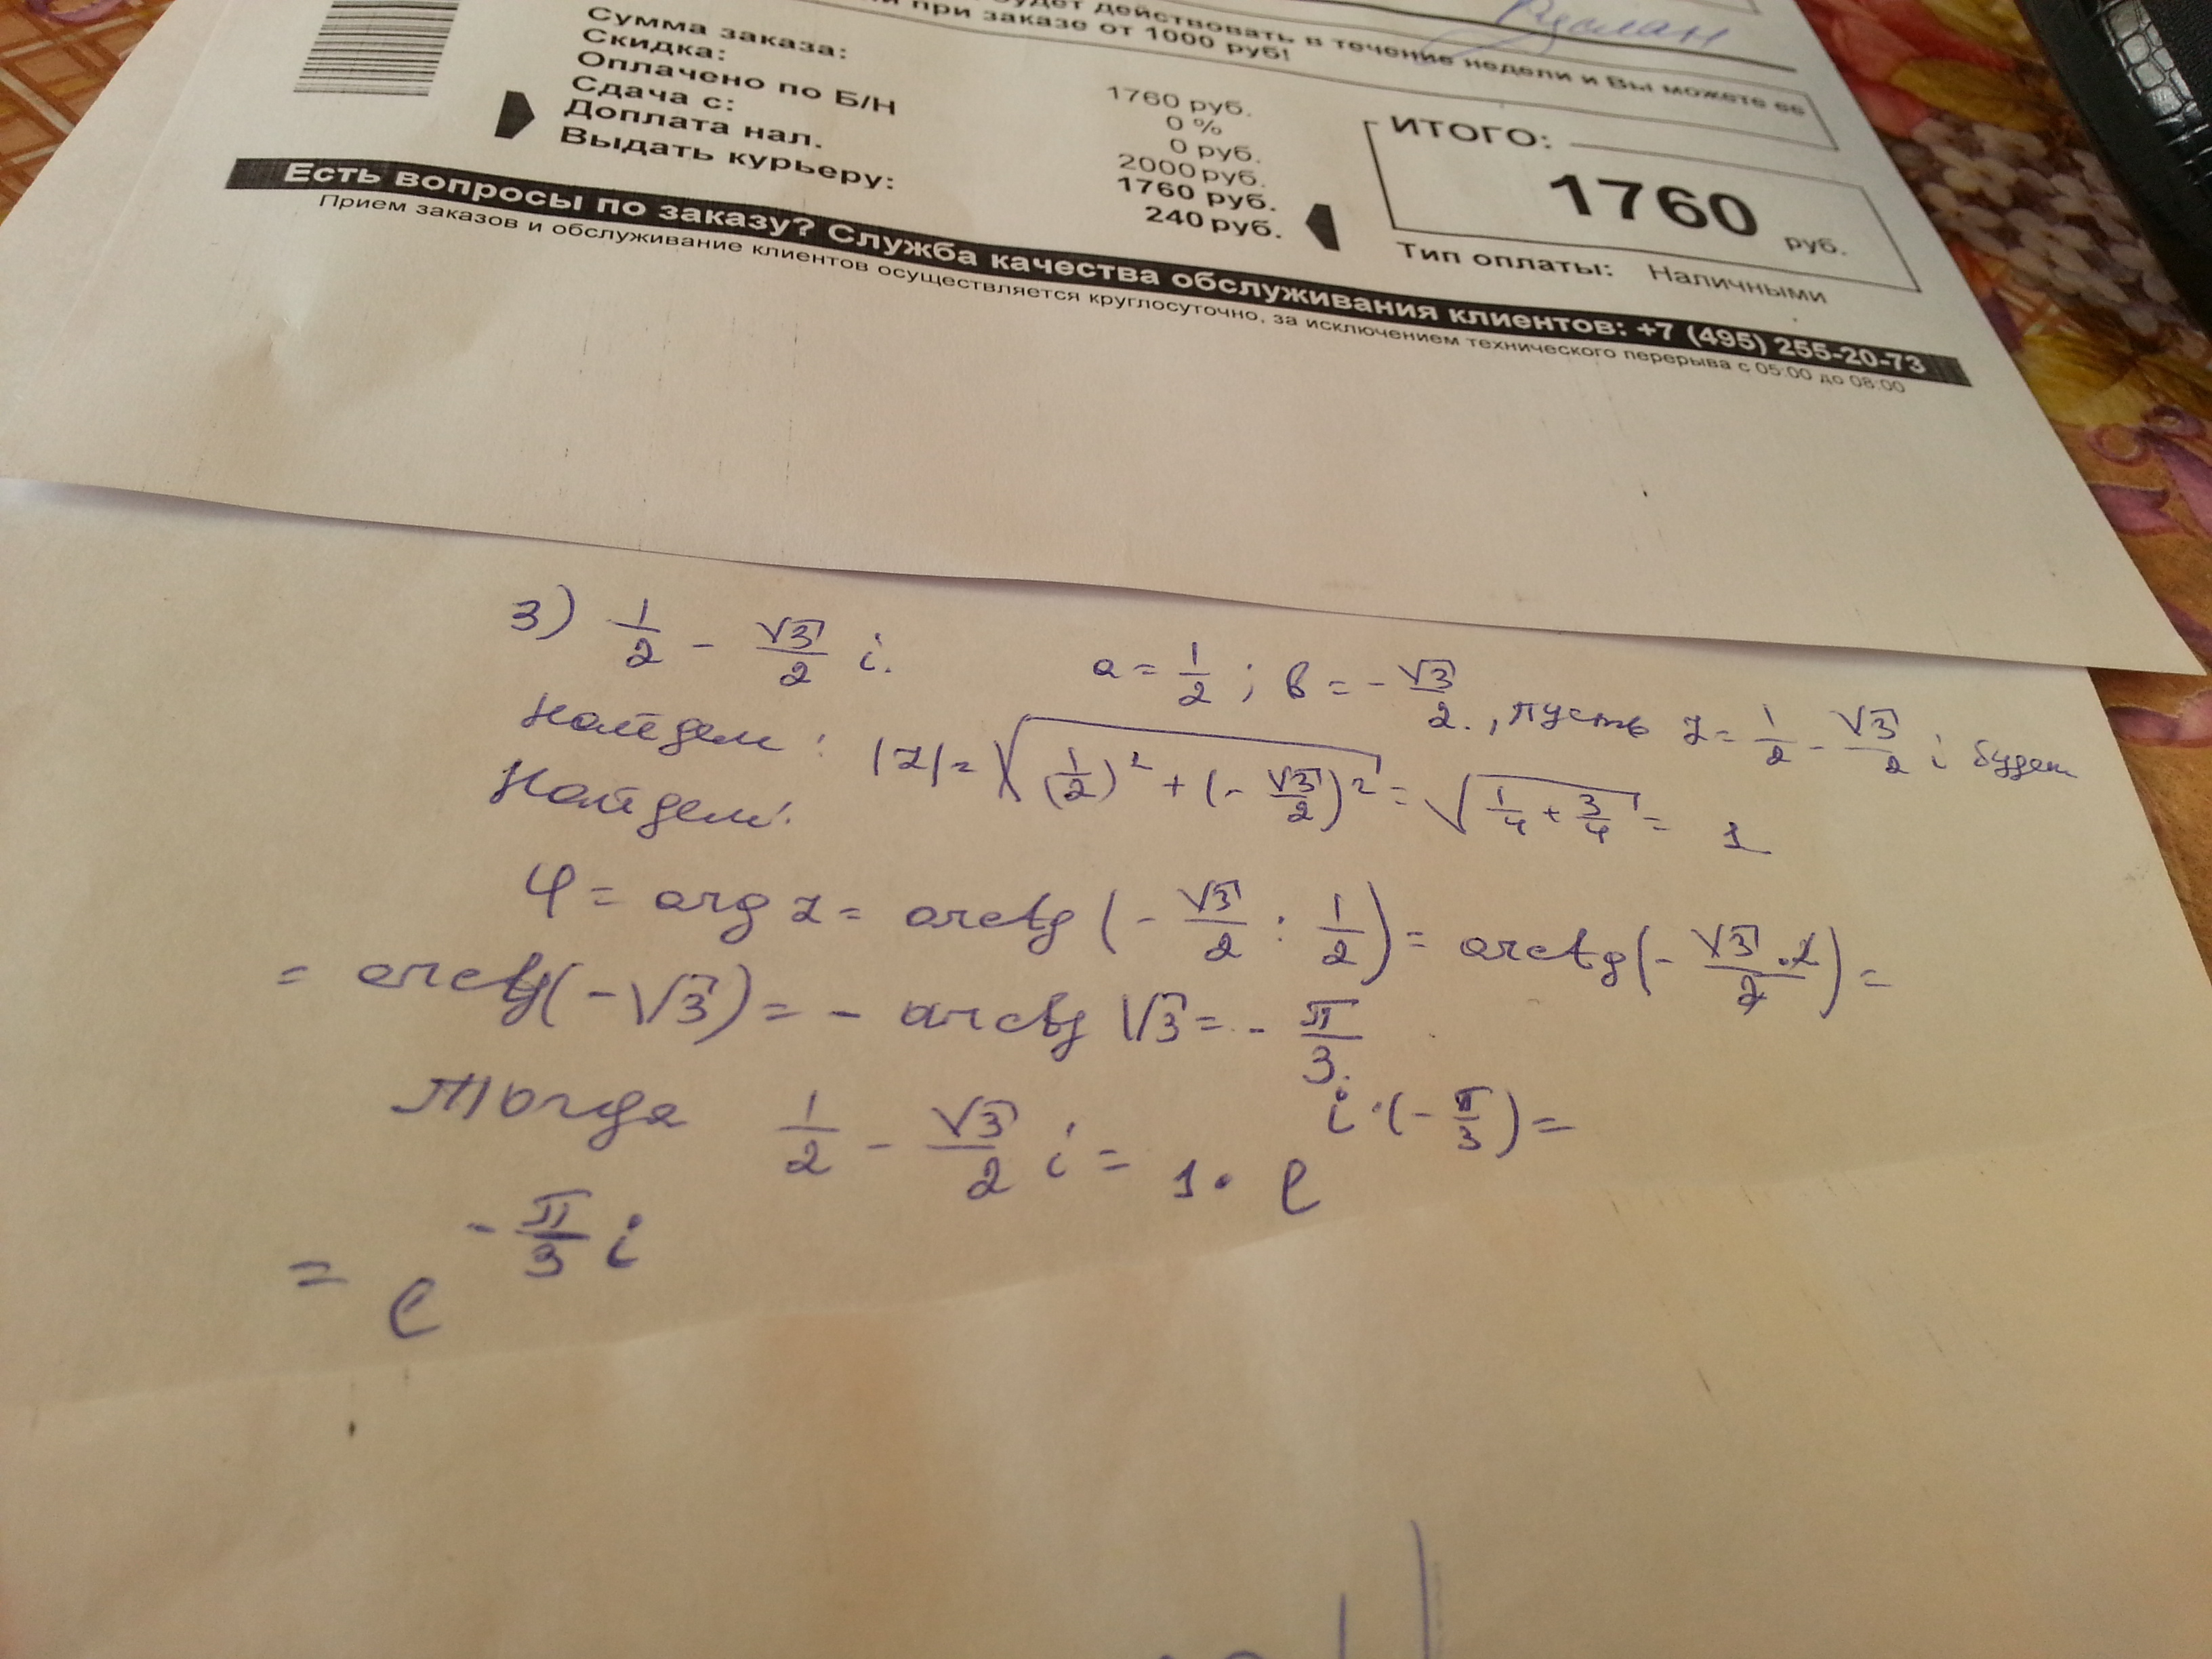 Руслан
будет действовать в течение недели и Вы можете ее
при заказе от 1000 руб!
Сумма заказа: 1760 руб.
Скидка: 0 %
Оплачено по Б/Н 0 руб.
Сдача с: 2000 руб.
Доплата нал. 1760 руб.
Выдать курьеру: 240 руб.
ИТОГО:
1760 руб.
Тип оплаты: Наличными
Есть вопросы по заказу? Служба качества обслуживания клиентов: +7 (495) 255-20-73
Прием заказов и обслуживание клиентов осуществляется круглосуточно, за исключением технического перерыва с 05:00 до 08:00
3) 1/2 - √3/2 i. a = 1/2 ; b = - √3/2., пусть z = 1/2 - √3/2 i будет
Найдем: |z| = √((1/2)² + (- √3/2)²) = √(1/4 + 3/4) = 1
Найдем:
φ = arg z = arctg (- √3/2 : 1/2) = arctg (- √3/2 · 2) =
= arctg(-√3) = - arctg √3 = - π/3.
Тогда 1/2 - √3/2 i = 1 · e^(i·(- π/3)) =
= e^(- π/3 i)